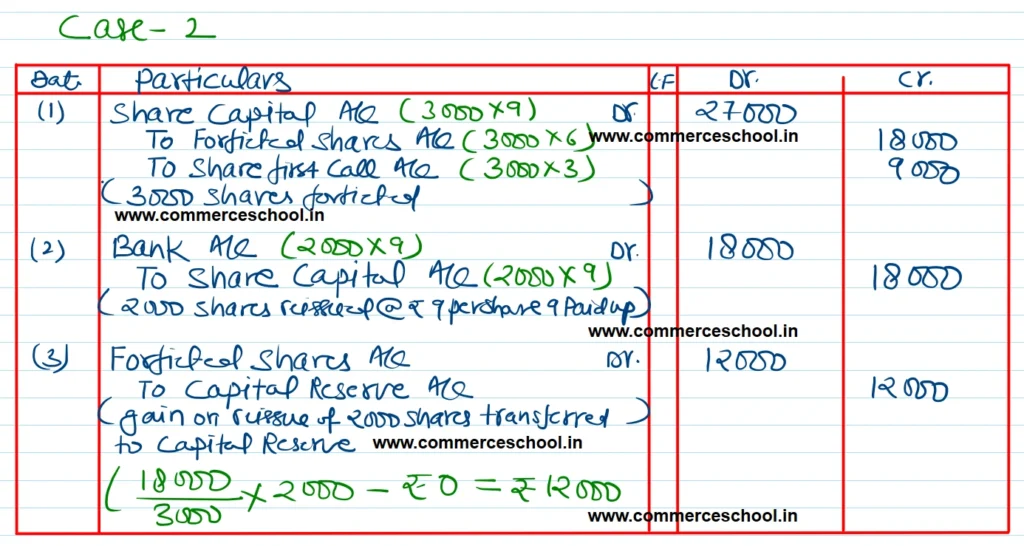 Case - 2
Dat. Particulars L.F Dr. Cr.
(1) Share Capital A/c (3000×9) Dr. 27000
To Forficted Shares A/c (3000×6) www.commerceschool.in 18000
To Share first Call A/c (3000×3) 9000
(3000 shares forficted)
www.commerceschool.in
(2) Bank A/c (2000×9) Dr. 18000
To Share Capital A/c (2000×9) 18000
(2000 shares reissued @ ₹ 9 per share 9 Paid up)
www.commerceschool.in
(3) Forficted Shares A/c Dr. 12000
To Capital Reserve A/c 12000
(gain on reissue of 2000 shares transferred)
to Capital Reserve www.commerceschool.in
(18000/3000 × 2000 - ₹ 0 = ₹ 12000
www.commerceschool.in